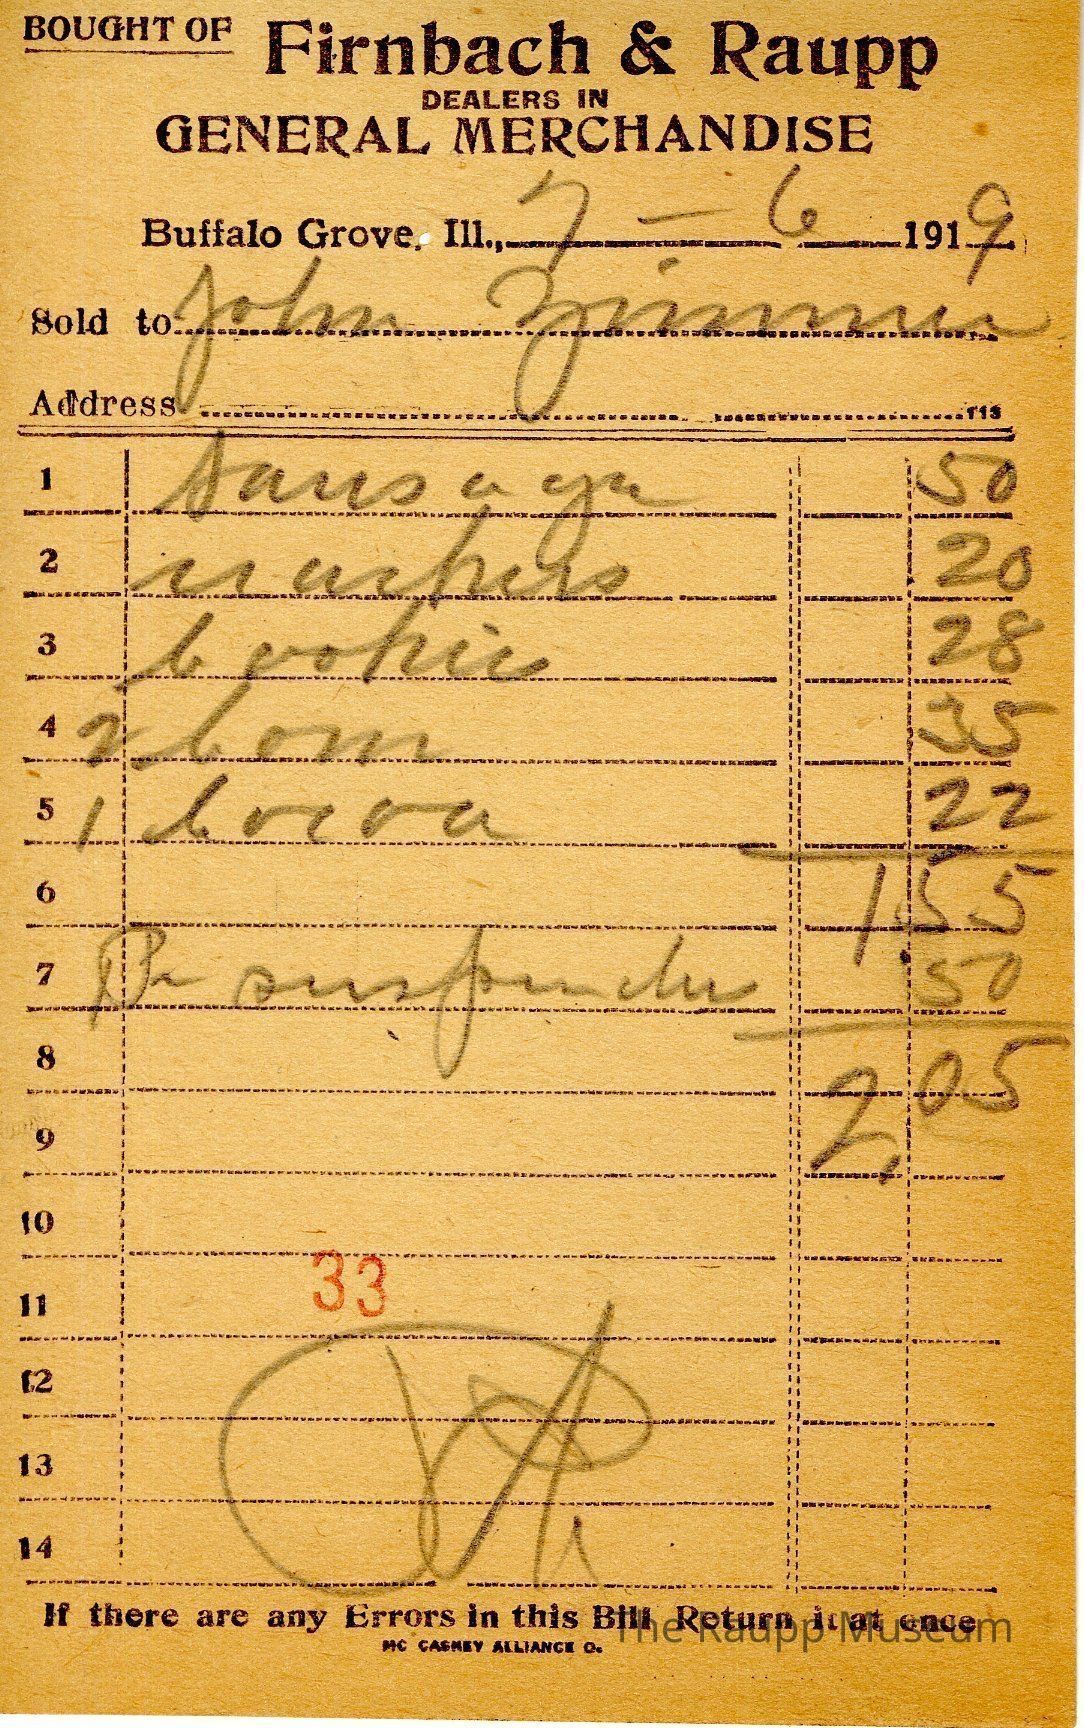 BOUGHT OF Firnbach & Raupp
DEALERS IN
GENERAL MERCHANDISE
Buffalo Grove, Ill., 7 - 6 1919
Sold to John Zimmer
Address
1 Sausage 50
2 crackers 20
3 cookies 28
4 2 corn 35
5 1 cocoa 22
6 1 55
7 Pr suspender 50
8 2,05
9
10
11 33
12
13
14
If there are any Errors in this Bill Return it at once
MC CASKEY ALLIANCE O.
The Raupp Museum